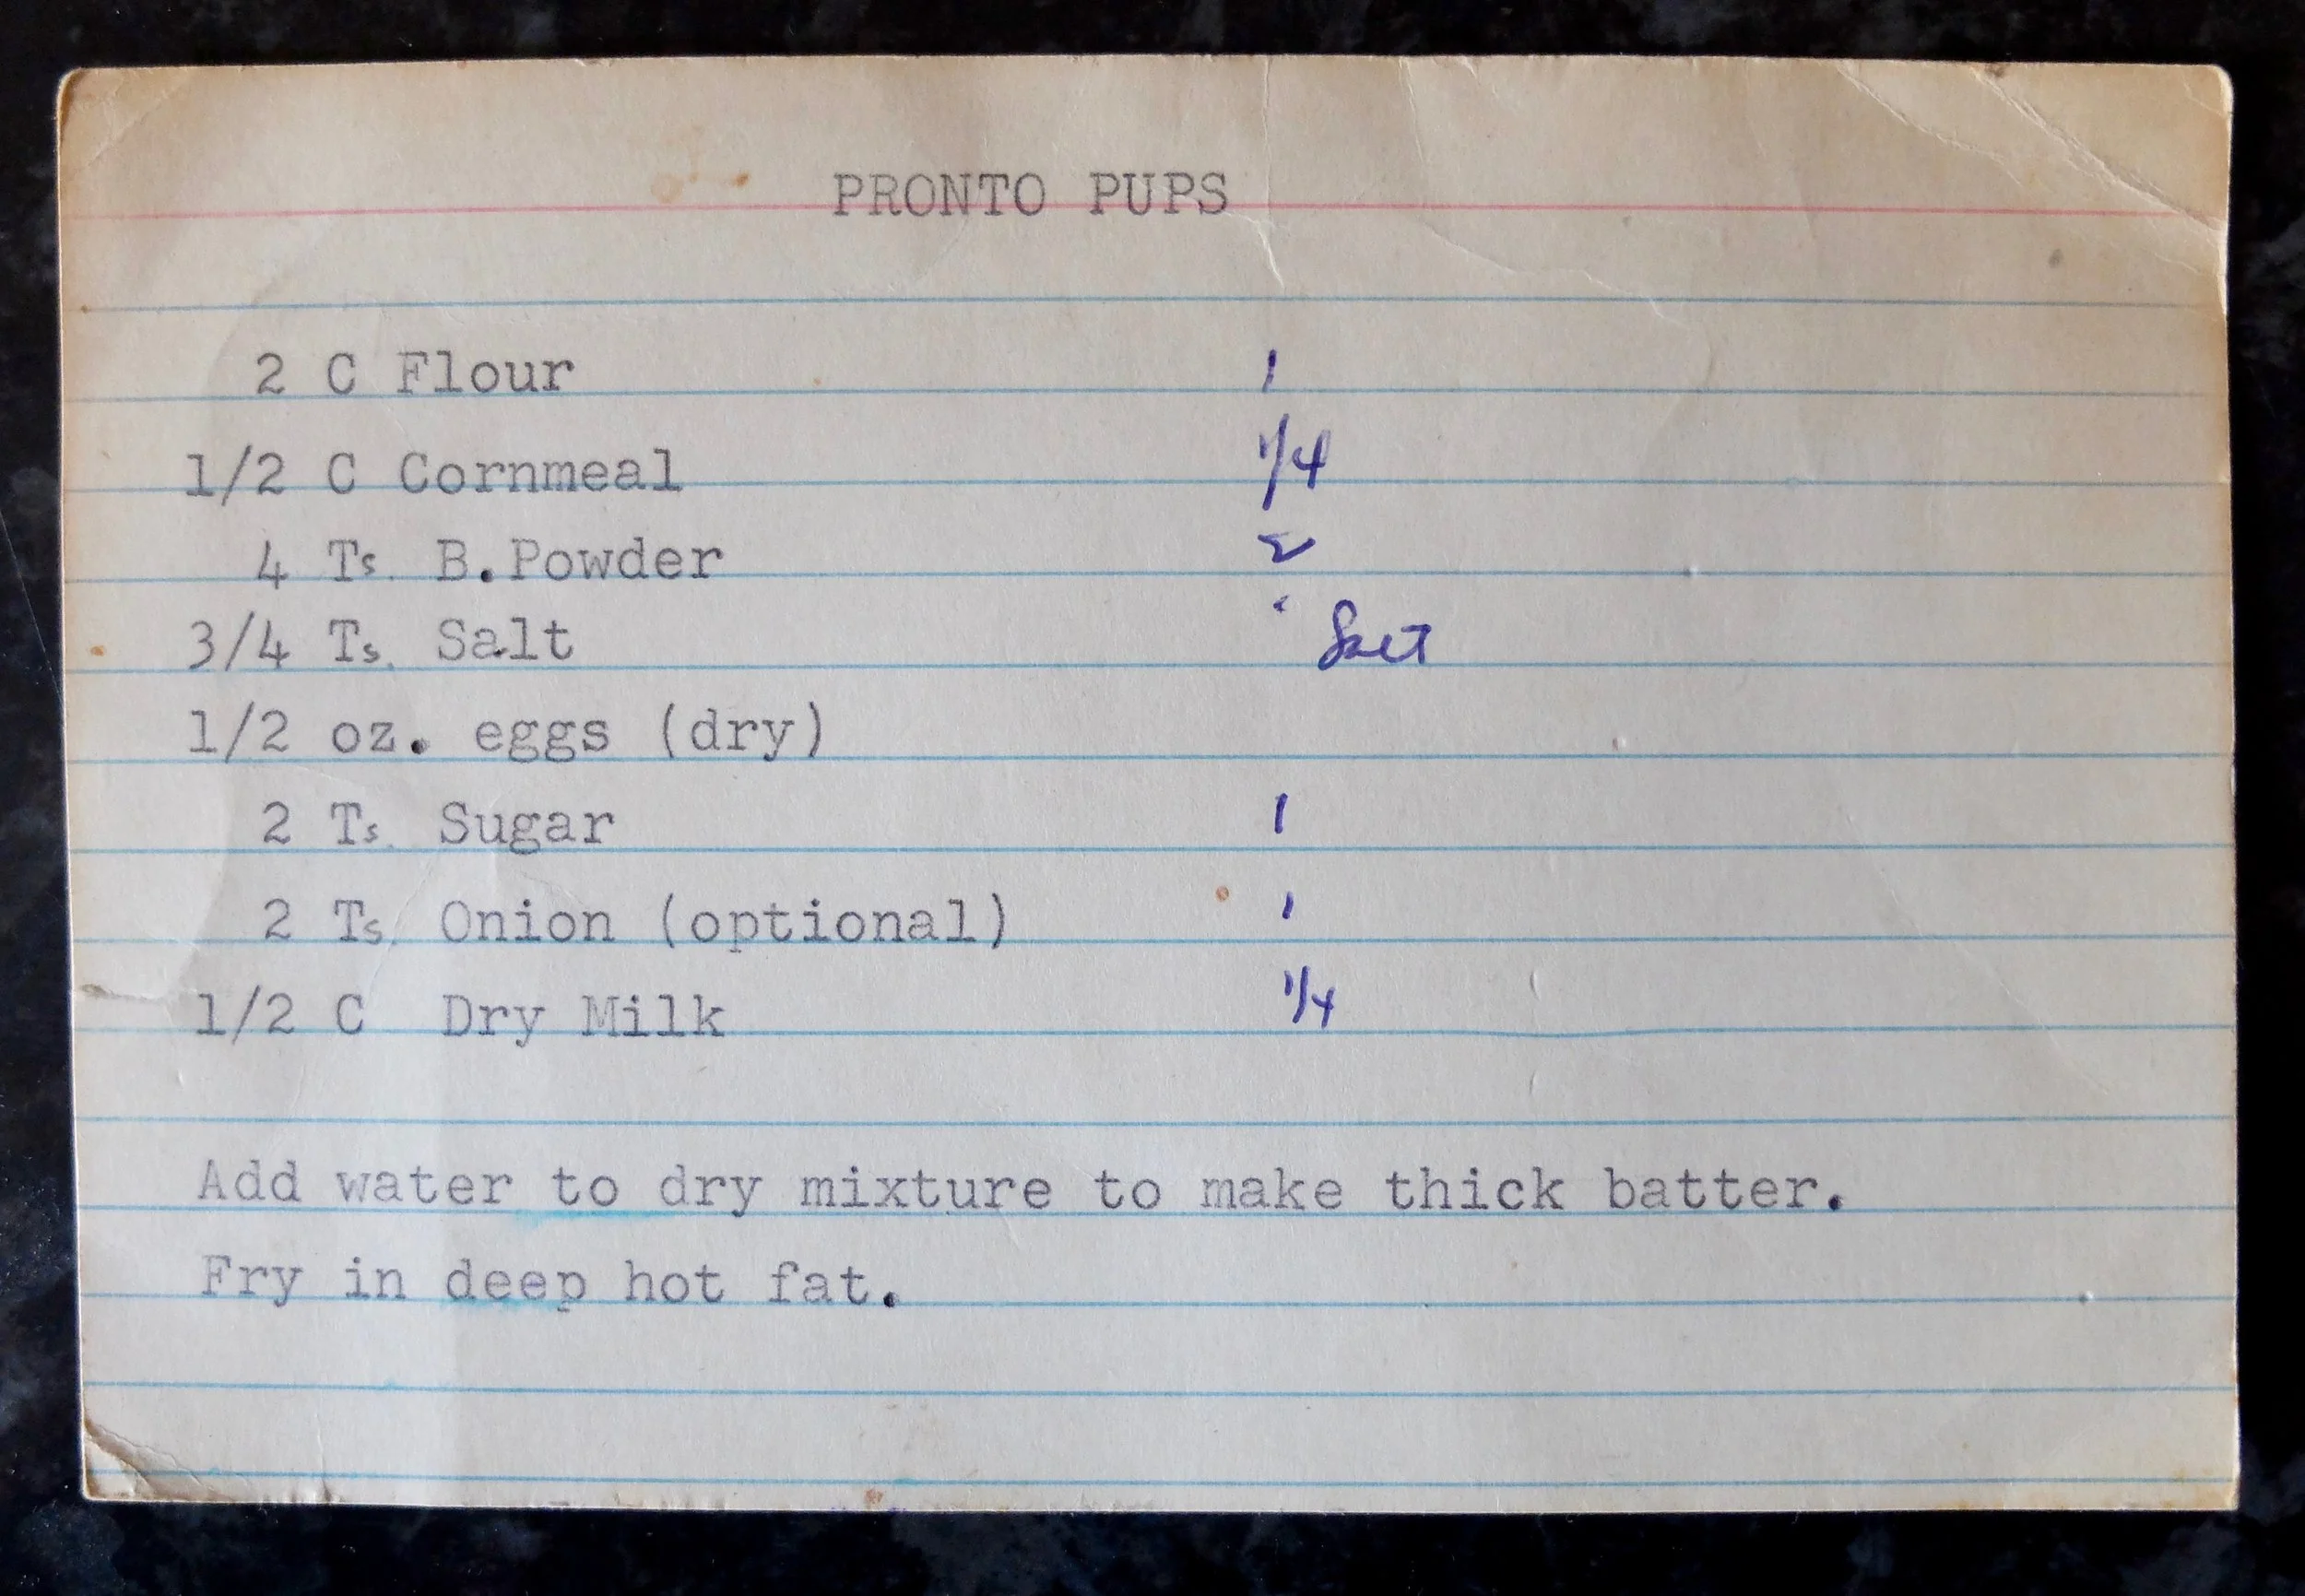 PRONTO PUPS
2 C Flour 1
1/2 C Cornmeal 1/4
4 Ts. B.Powder 2
3/4 Ts. Salt Salt
1/2 oz. eggs (dry)
2 Ts. Sugar 1
2 Ts. Onion (optional) 1
1/2 C Dry Milk 1/4
Add water to dry mixture to make thick batter.
Fry in deep hot fat.